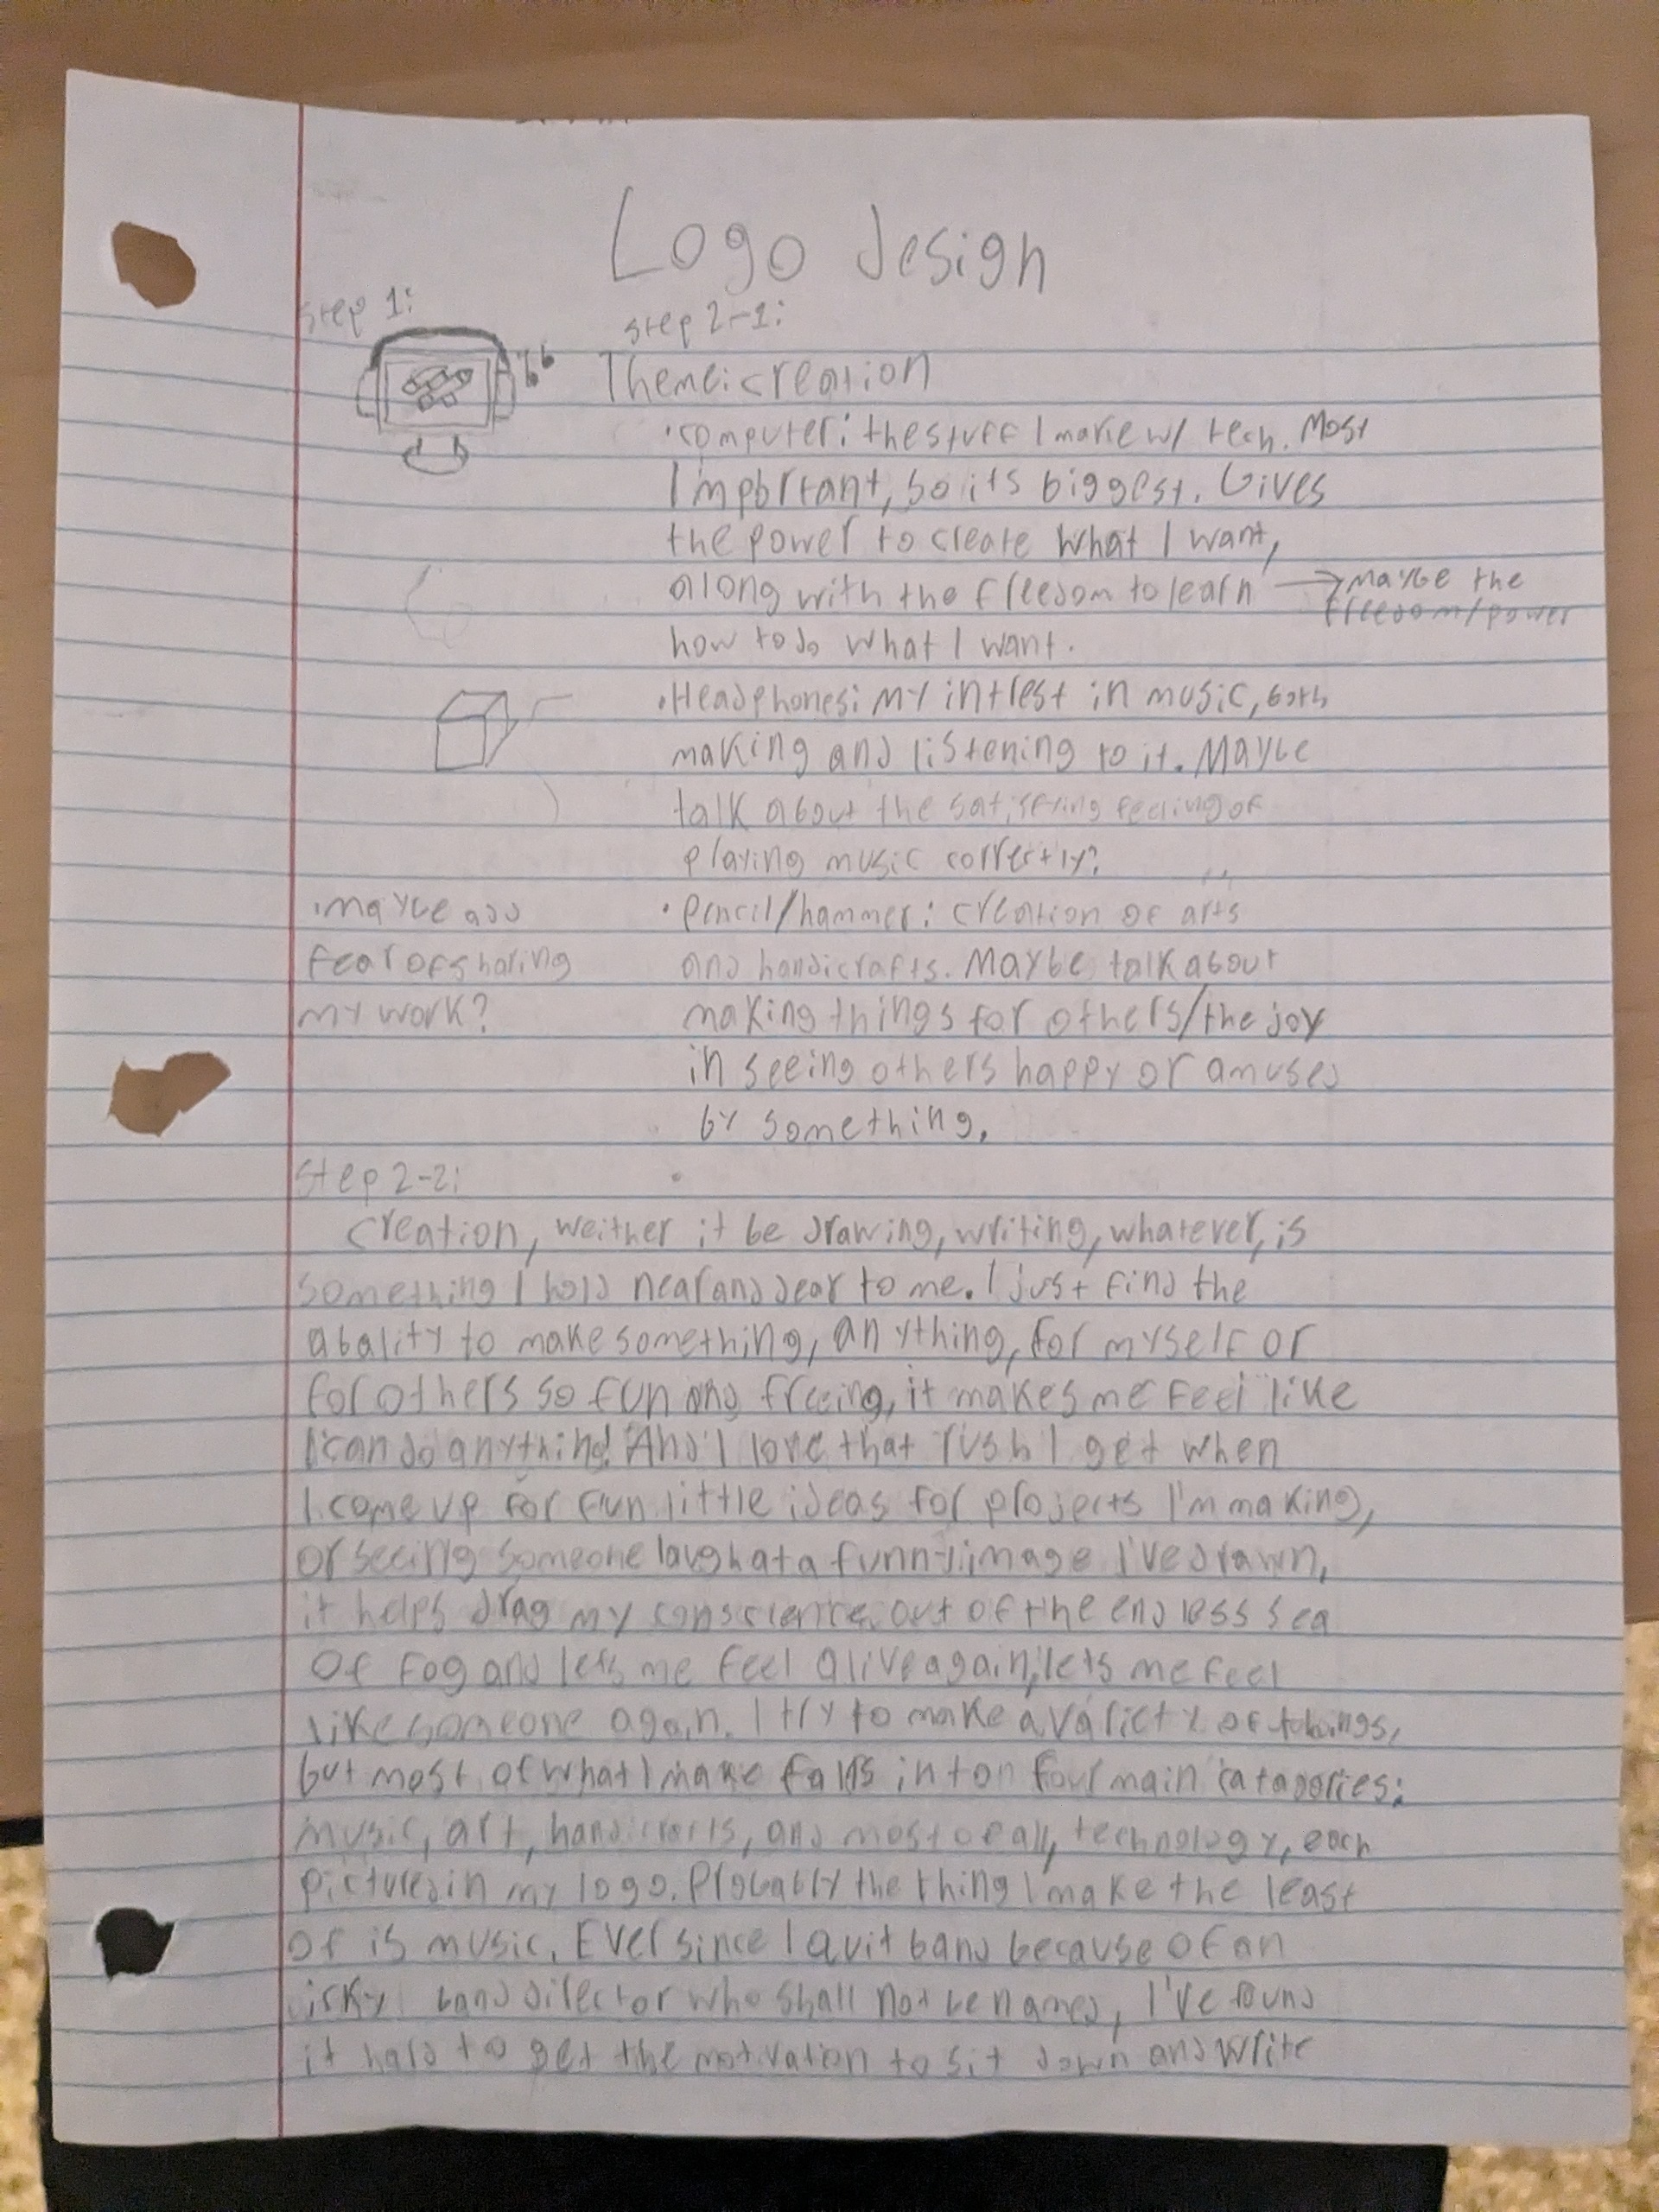 Logo design
Step 1:
Step 2-1:
Theme: creation
• computer: the stuff I make w/ tech. Most
Important, so its biggest. Gives
the power to create what I want,
along with the freedom to learn → maybe the
freedom/power
how to do what I want.
• Headphones: my intrest in music, both
making and listening to it. Maybe
talk about the satisfying feeling of
playing music correctly?
• maybe add
fear of sharing
my work?
• Pencil/hammer: creation of arts
and handicrafts. Maybe talk about
making things for others/the joy
in seeing others happy or amused
by something.
Step 2-2:
Creation, weither it be drawing, writing, whatever, is
something I hold near and dear to me. I just find the
abality to make something, anything, for myself or
for others so fun and freeing, it makes me feel like
I can do anything! And I love that rush I get when
I come up for fun little ideas for projects I'm making,
or seeing someone laugh at a funny image I've drawn,
it helps drag my conscience out of the endless sea
of fog and lets me feel alive again, lets me feel
like someone again. I try to make a variety of things,
but most of what I make falls into four main catagories:
music, art, handicrafts, and most of all, technology, each
pictured in my logo. Probably the thing I make the least
of is music. Ever since I quit band because of an
icky band director who shall not be named, I've found
it hard to get the motivation to sit down and write